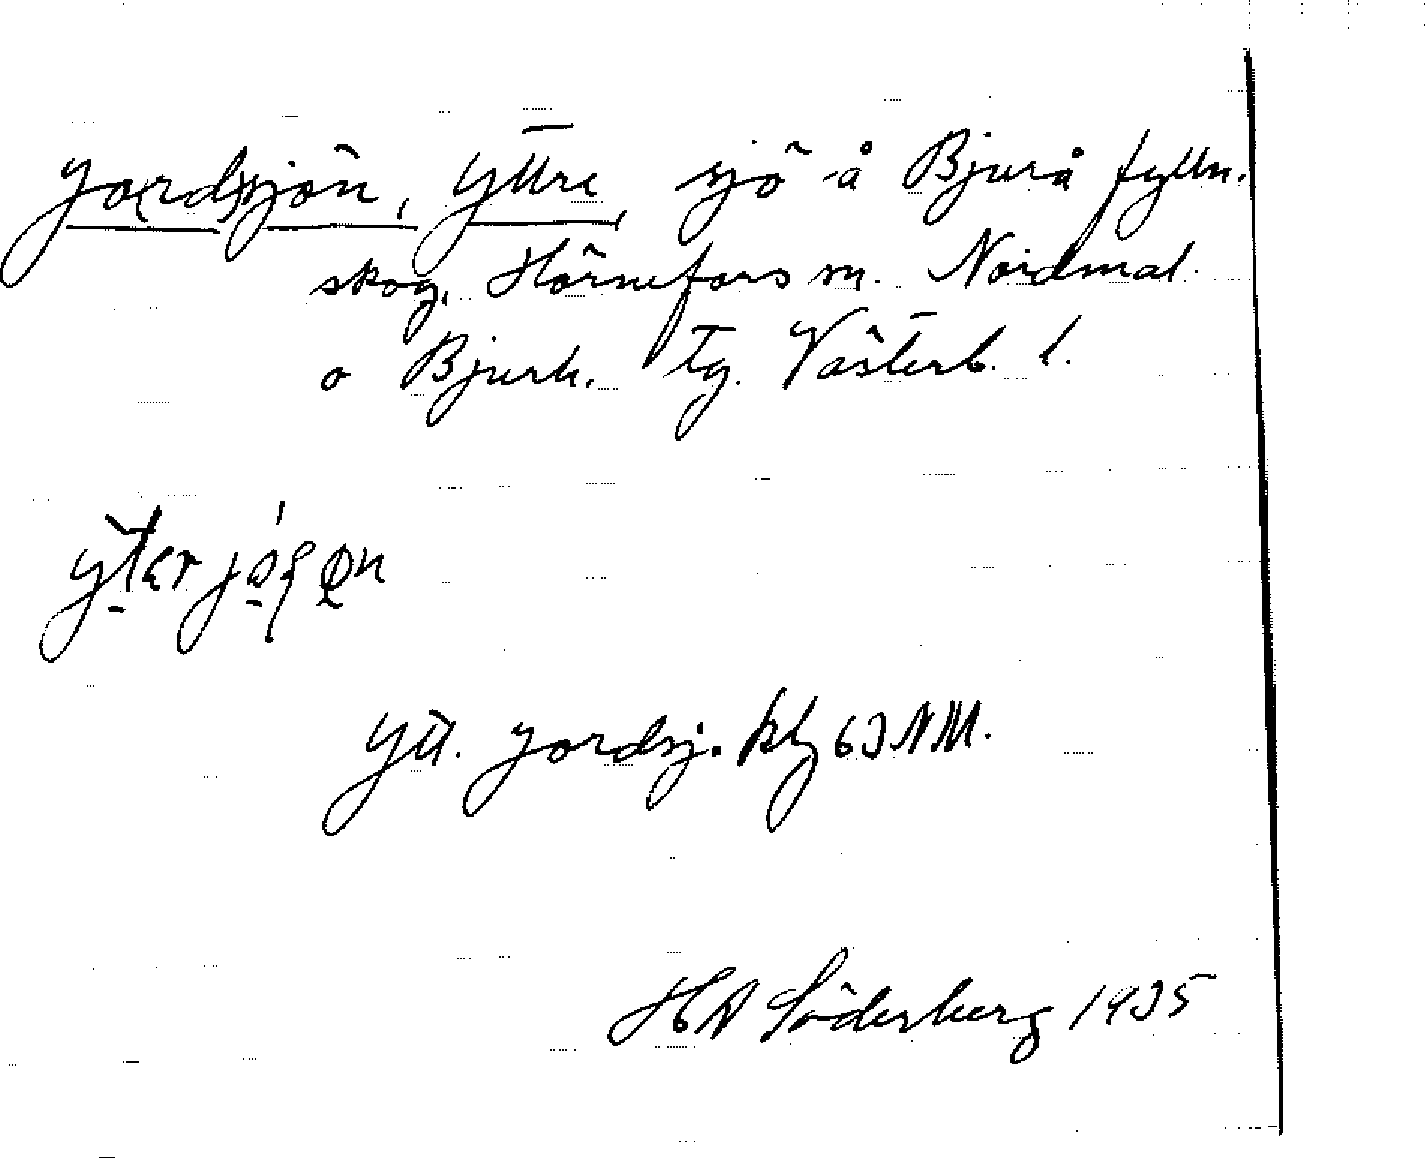 Jo(rd)sjön, Yttre, sjö å Bjurå fylln.
skog, Hörnefors sn. Nordmal.
o Bjurh. tg. Västerb. l.
Ytt. Jordsj. kbl 63 NM.
HA Söderberg 1935